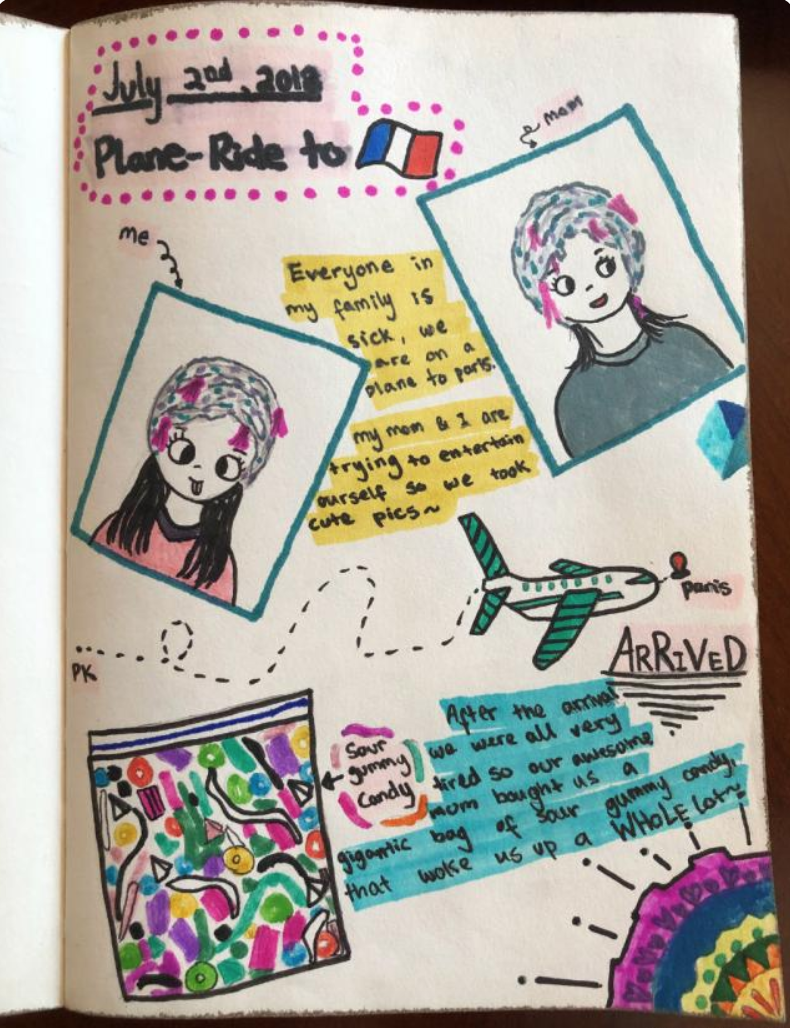 July 2nd, 2018
Plane-Ride to
mom
me
Everyone in
my family is
sick, we
are on a
plane to paris.
my mom & I are
trying to entertain
ourself so we took
cute pics~
paris
PK
ARRIVED
After the arrival
we were all very
tired so our awesome
mom bought us a
gigantic bag of sour gummy candy,
that woke us up a WHOLE lot~
Sour
gummy
Candy